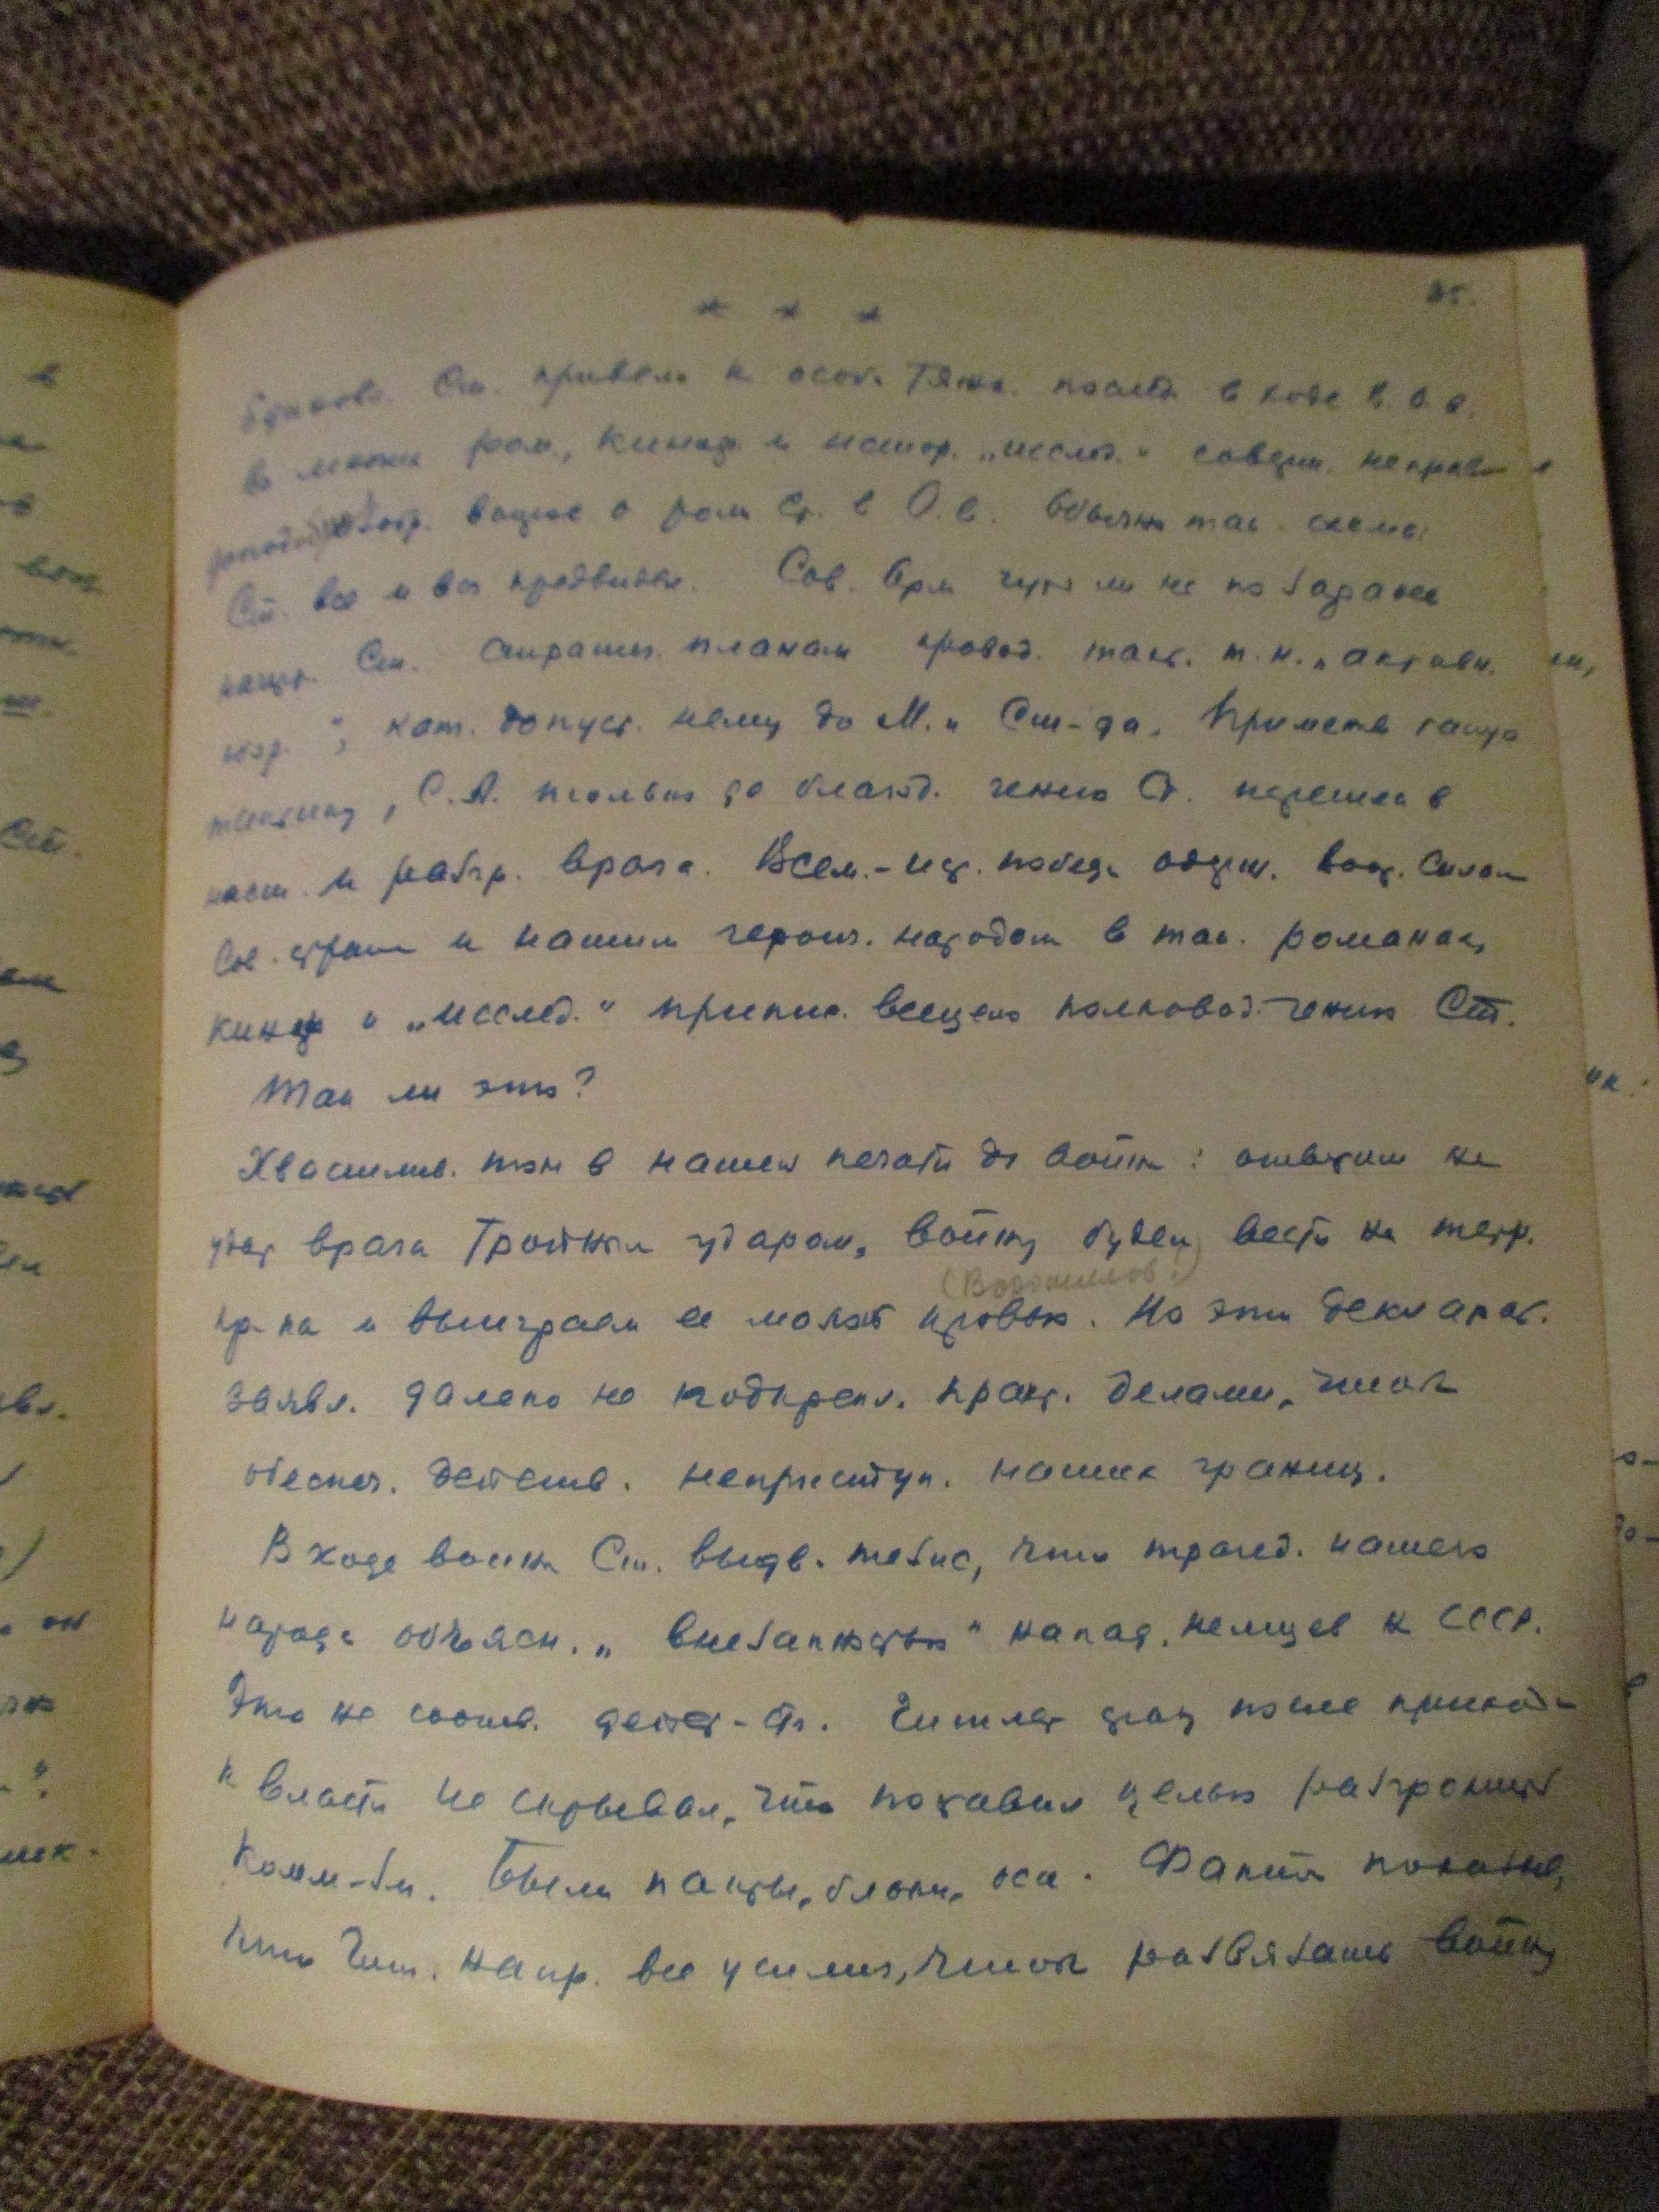 * * *
Ст. привело к особ. тяжк. послед. в ходе В. О. в.
Во многих ром., кинокар. и истор. „исслед.“ соверш. неправ-
вопрос о роли Ст. в О. в. Обычно так. схема:
Ст. все и вся предвидел. Сов. Арм. чуть ли не по заранее
Ст. стратегич. планам провод. такт. т. н. „активн.
", кот. допуст. немц. до М. и Ст-да. Применив такую
тактику, С. А. только де благод. гению Ст. перешла в
наст. и разгр. врага. Всем.-ист. победа одерж. воор. силами
Сов. страны и нашим героич. народом в так. романах,
кинокар и „исслед.“ припис. всецело полковод. гению Ст.
Так ли это?
Хвастлив. тон в нашей печати до войны: ответим на
удар врага тройным ударом, войну будем вести на терр.
(Ворошилов!)
пр-ка и выиграем ее малой кровью. Но эти декларат.
заявл. далеко не подкрепл. практ. делами, чтоб
обеспеч. действ. неприступн. наших границ.
В ходе войны Ст. выдв. тезис, что трагед. нашего
народа объясн. „внезапностью“ напад. немцев на СССР.
Это не соотв. действ-ти. Гитлер сразу после прихода
к власти не скрывал, что поставил целью разгромить
комм-зм. Были пакты, блоки, оси. Факты показыв,
что Гит. напр. все усилия, чтобы развязать войну